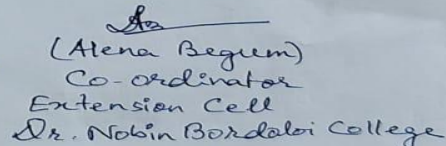 (Alena Begum)
Co-ordinator
Extension Cell
Dr. Nobin Bordoloi College